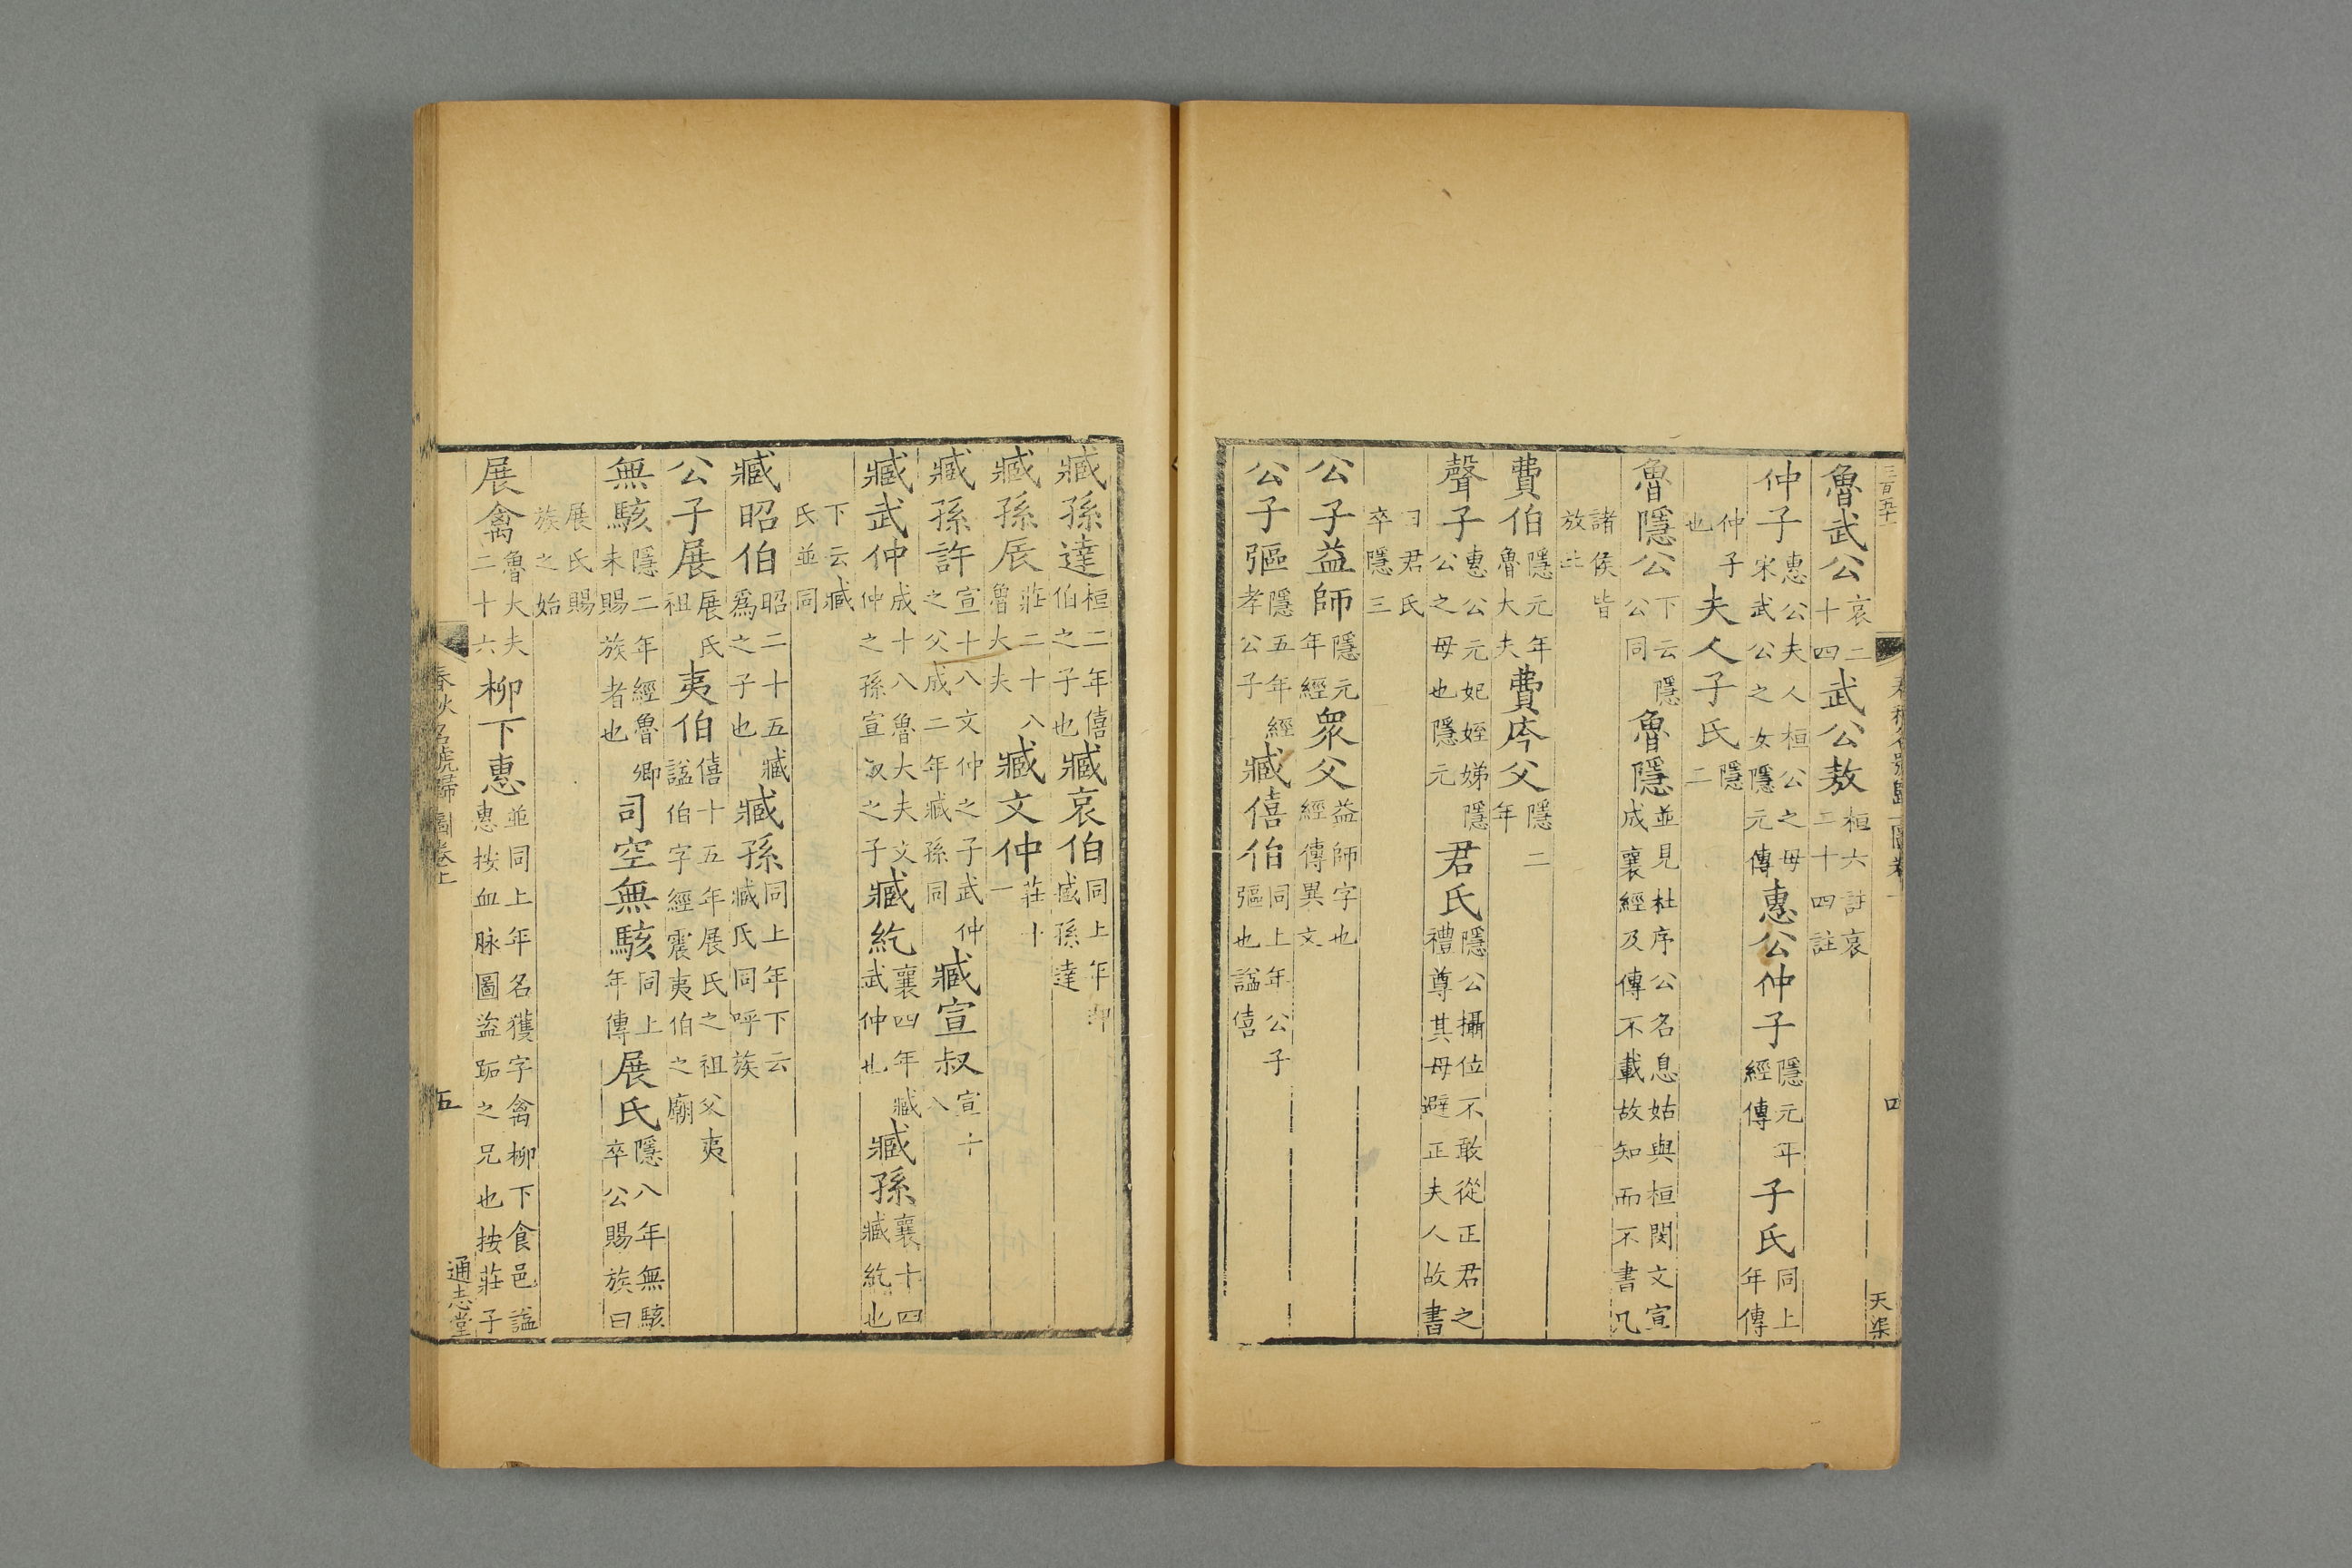 三百五十
魯武公哀二十四武公敖桓六註哀二十四註
仲子惠公夫人桓公之母宋武公之女隱元傳惠公仲子隱元年經傳子氏同上年傳
仲子也夫人子氏隱二
魯隱公下云隱公同魯隱並見杜序公名息姑與桓閔文宣成襄經及傳不載故知而不書凡
諸侯皆放此
費伯隱元年魯大夫費庈父隱二年
聲子惠公元妃姪娣隱公之母也隱元君氏隱公攝位不敢從正君之禮尊其母避正夫人故書
曰君氏卒隱三
公子益師隱元年經眾父益師字也經傳異文
公子彄隱五年經孝公子臧僖伯同上年公子彄也謚僖
四
天渠
臧孫達桓二年僖伯之子也臧哀伯同上年即臧孫達
臧孫辰莊二十八魯大夫臧文仲莊十一
臧孫許宣十八文仲之子武仲之父成二年臧孫同臧宣叔宣十八
臧武仲成十八魯大夫文仲之孫宣叔之子臧紇襄四年臧武仲也臧孫襄十四臧紇也
下云臧氏並同
臧昭伯昭二十五臧為之子也臧孫同上年下云臧氏同呼族
公子展展氏祖夷伯僖十五年展氏之祖父夷謚伯字經震夷伯之廟
無駭隱二年經魯卿未賜族者也司空無駭同上年傳展氏隱八年無駭卒公賜族曰
展氏賜族之始
展禽魯大夫二十六柳下惠並同上年名獲字禽柳下食邑謚惠按血脉圖盜跖之兄也按莊子
春秋名號歸一圖卷上
五
通志堂